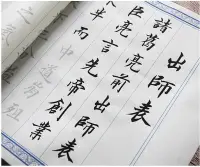 出師表
諸葛亮前出師表
臣亮言先帝創業
半而
中道崩殂